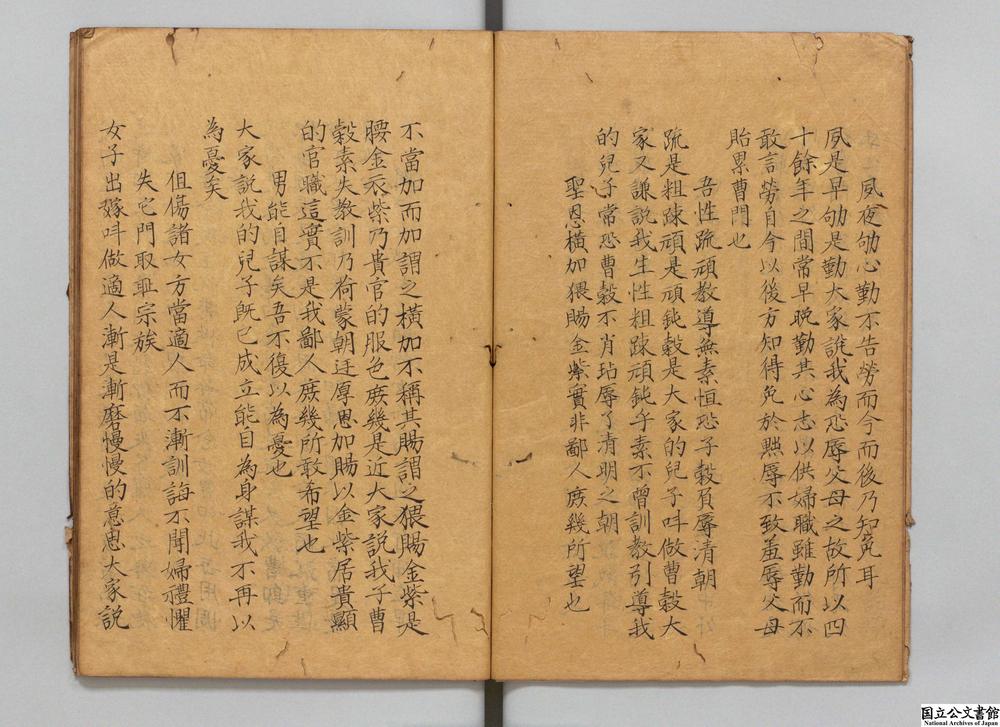 夙夜劬心勤不告勞而今而後乃知免耳
夙是早劬是勤大家說我為恐辱父母之故所以四
十餘年之間常早晚勤其心志以供婦職雖勤而不
敢言勞自今以後方知得免於黜辱不致羞辱父母
貽累曹門也
吾性疏頑教導無素恒恐子穀負辱清朝
疏是粗疎頑是頑鈍穀是大家的兒子呌做曹穀大
家又謙說我生性粗疎頑鈍乎素不曾訓教引導我
的兒子當恐曹穀不肖玷辱了清明之朝
聖恩橫加猥賜金紫實非鄙人庻幾所望也
不當加而加謂之橫加不稱其賜謂之猥賜金紫是
腰金衣紫乃貴官的服色庻幾是近大家説我子曹
穀素失教訓乃荷蒙朝廷厚恩加賜以金紫居貴顯
的官職這實不是我鄙人庻幾所敢希望也
男能自謀矣吾不復以為憂也
大家說我的兒子旣已成立能自為身謀我不再以
為憂矣
但傷諸女方當適人而不漸訓誨不聞婦禮懼
失它門取耻宗族
女子出嫁呌做適人漸是漸磨慢慢的意思大家説
国立公文書館
National Archives of Japan